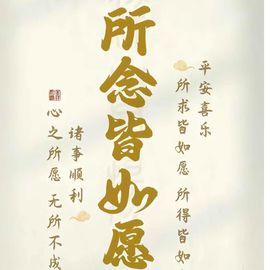 所念皆如愿
平安喜乐
所求皆如愿 所得皆如
诸事顺利
心之所愿 无所不成